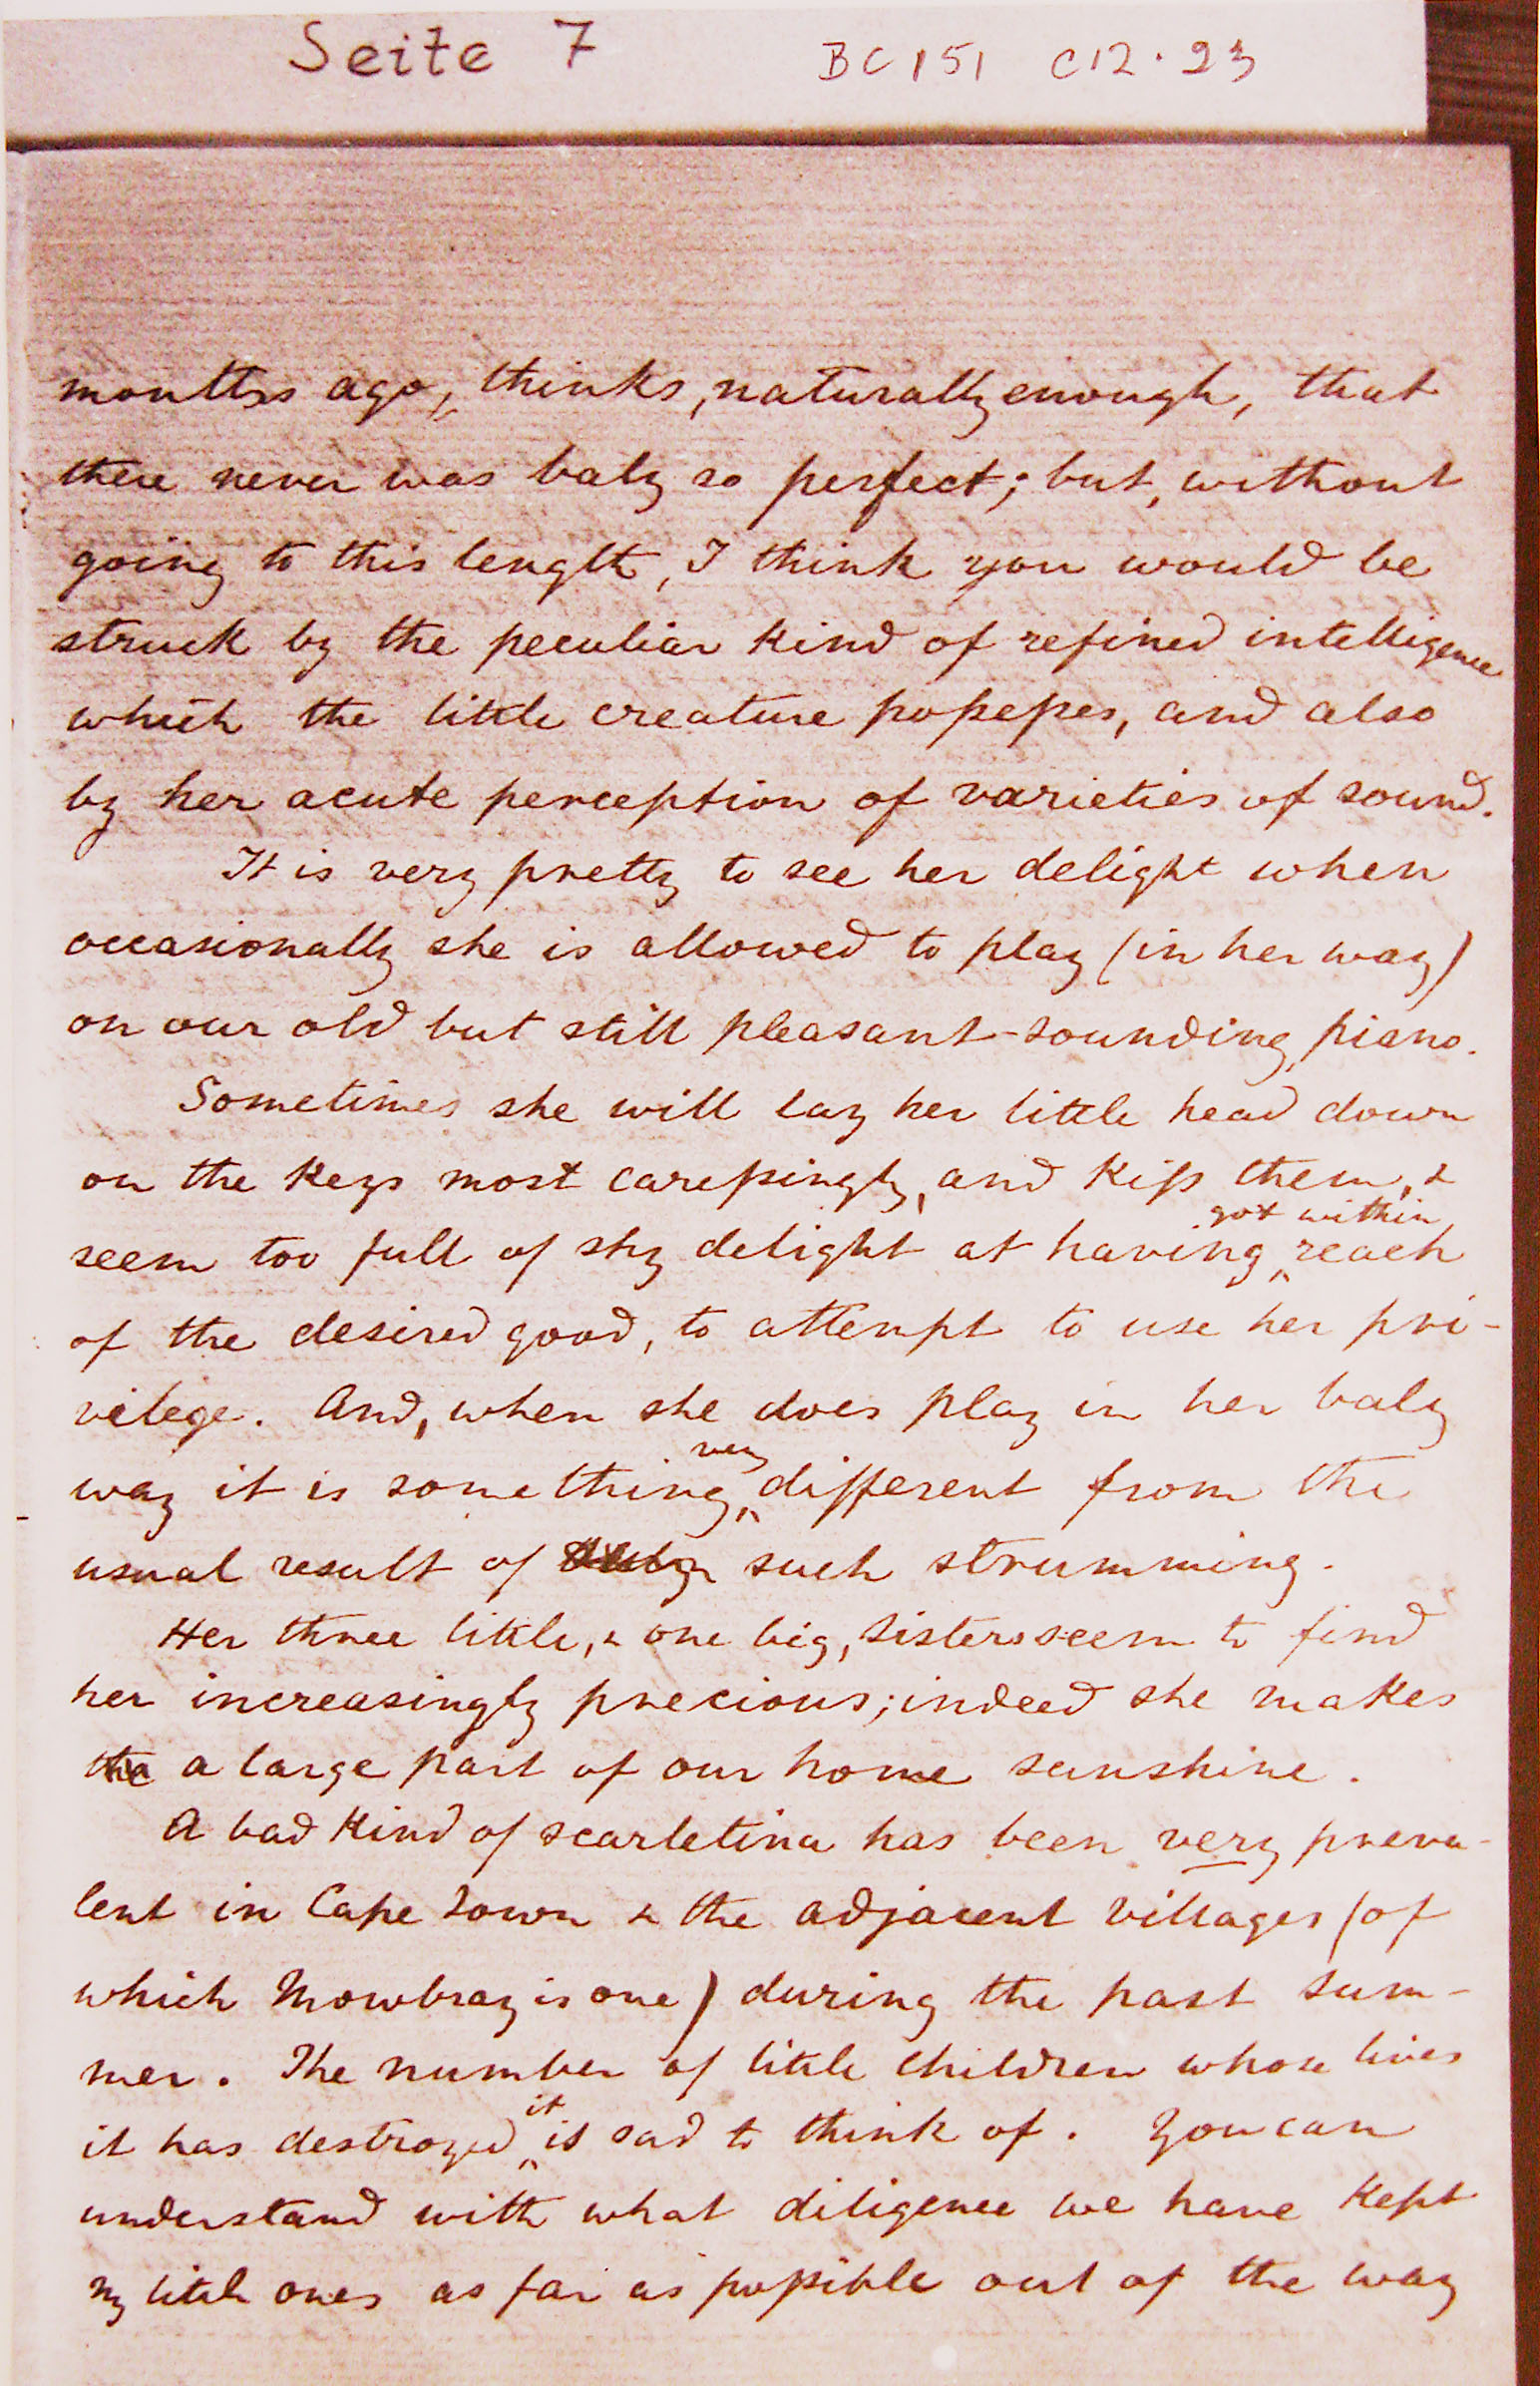 Seite 7 BC 151 C12.23
months ago, thinks, naturally enough, that
there never was baby so perfect; but, without
going to this length, I think you would be
struck by the peculiar kind of refined intelligence
which the little creature possesses, and also
by her acute perception of varieties of sound.
It is very pretty to see her delight when
occasionally she is allowed to play (in her way)
on our old but still pleasant-sounding piano.
Sometimes she will lay her little head down
on the keys most caressingly, and kiss them, &
seem too full of shy delight at having got within reach
of the desired good, to attempt to use her pri-
vilege. And, when she does play in her baby
way it is something very different from the
usual result of such strumming.
Her three little, & one big, sisters seem to find
her increasingly precious; indeed she makes
the a large part of our home sunshine.
A bad kind of scarletina has been very preva-
lent in Cape Town & the adjacent villages (of
which Mowbray is one) during the past sum-
mer. The number of little children whose lives
it has destroyed it is sad to think of. You can
understand with what diligence we have kept
my little ones as far as possible out of the way